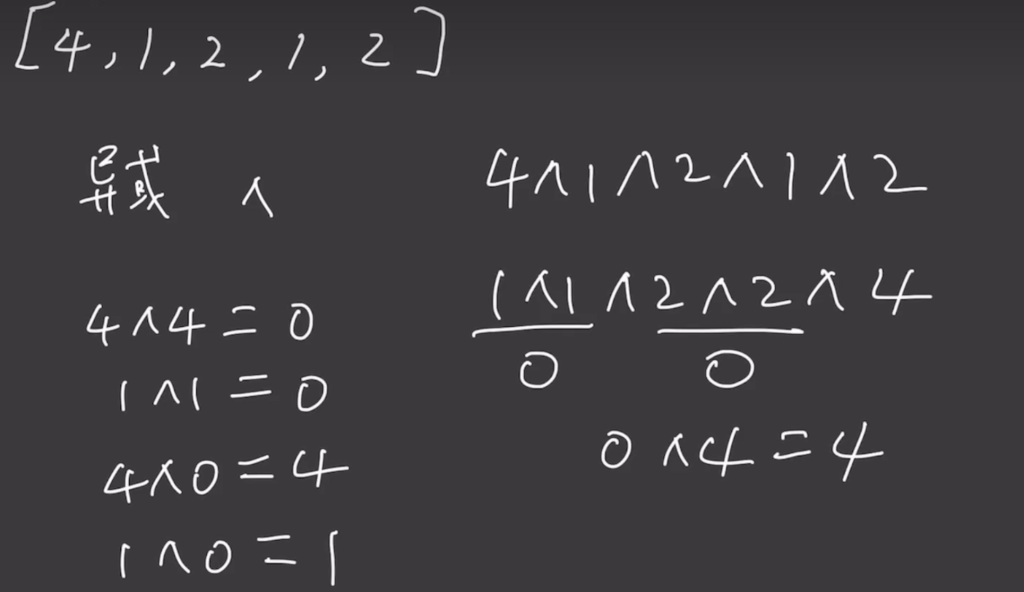 [4,1,2,1,2]
异或 ^
4^4=0
1^1=0
4^0=4
1^0=1
4^1^2^1^2
1^1^2^2^4
0 0
0^4=4